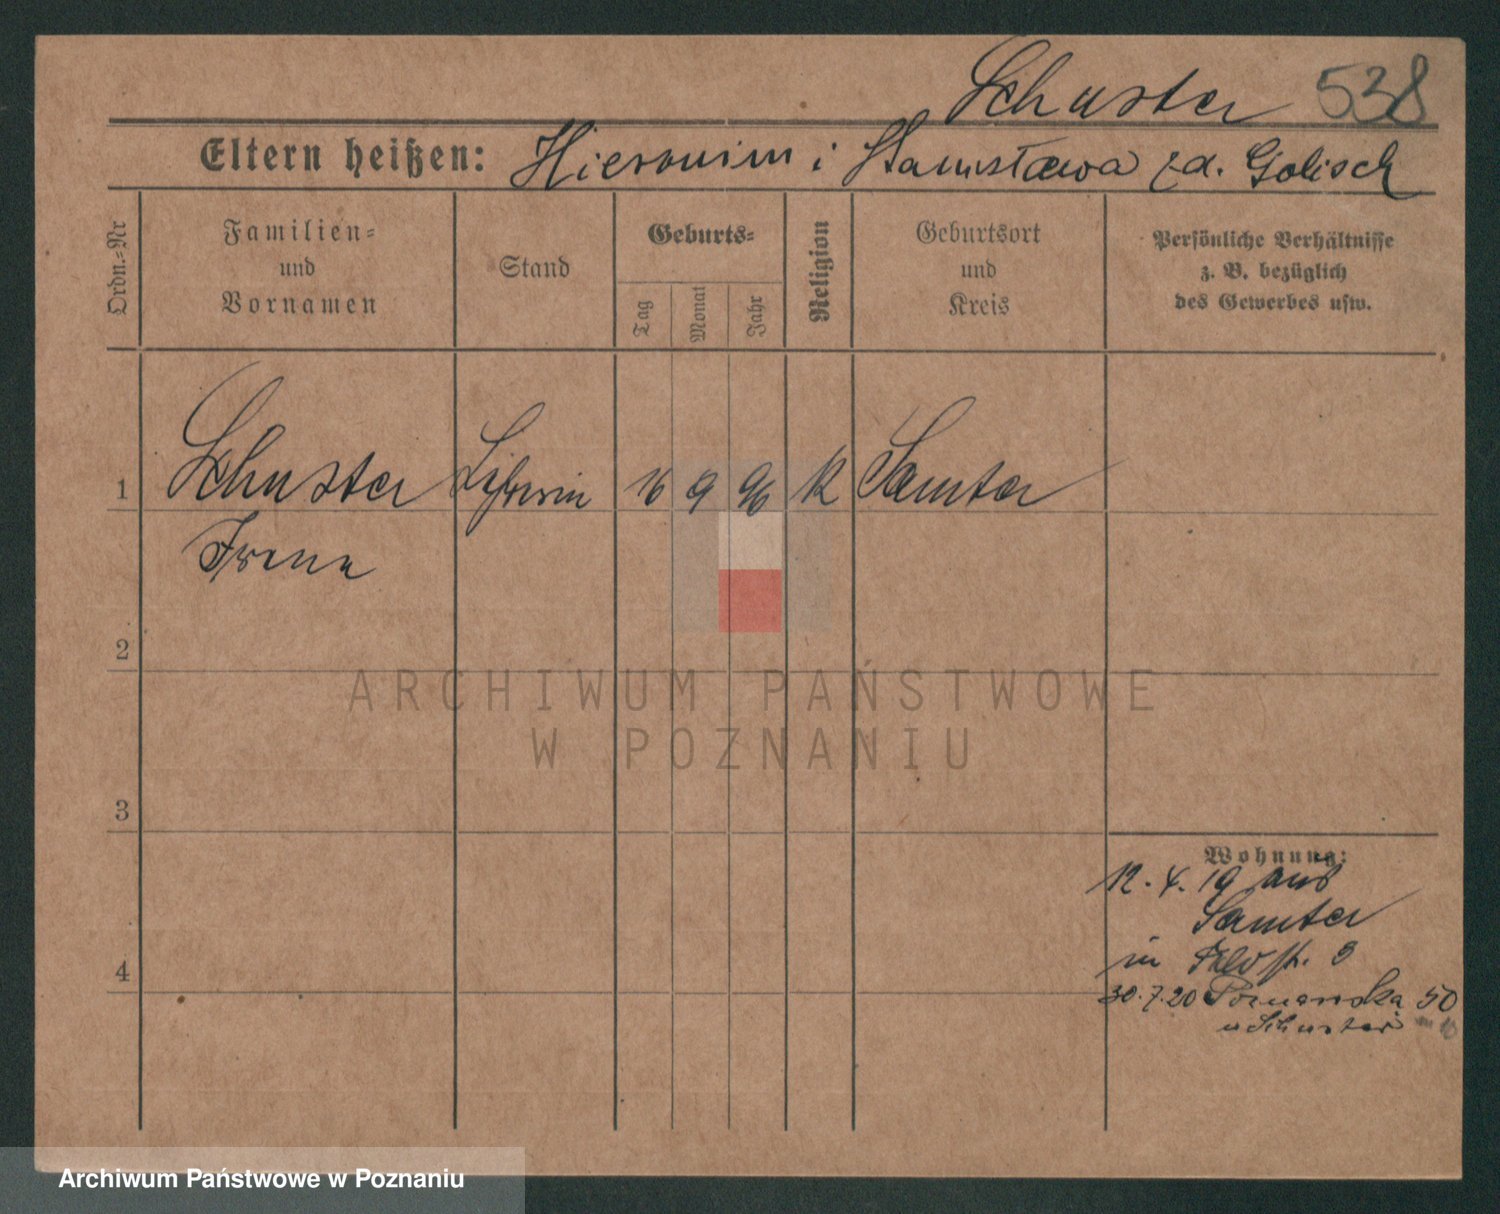 Schuster 538
Eltern heißen: Hieronim i Stanisława z d. Golisch
Ordn.=Nr
Familien=
und
Vornamen
Stand
Geburts=
Tag
Monat
Jahr
Religion
Geburtsort
und
Kreis
Persönliche Verhältnisse
z. B. bezüglich
des Gewerbes usw.
1 Schuster 16 9 96 K Samter
Irena
2
3
4
Wohnung:
12. 4. 19 aus
Samter
in
30.7.20 Poznanska 50
u Schuster
ARCHIWUM PAŃSTWOWE
W POZNANIU
Archiwum Państwowe w Poznaniu